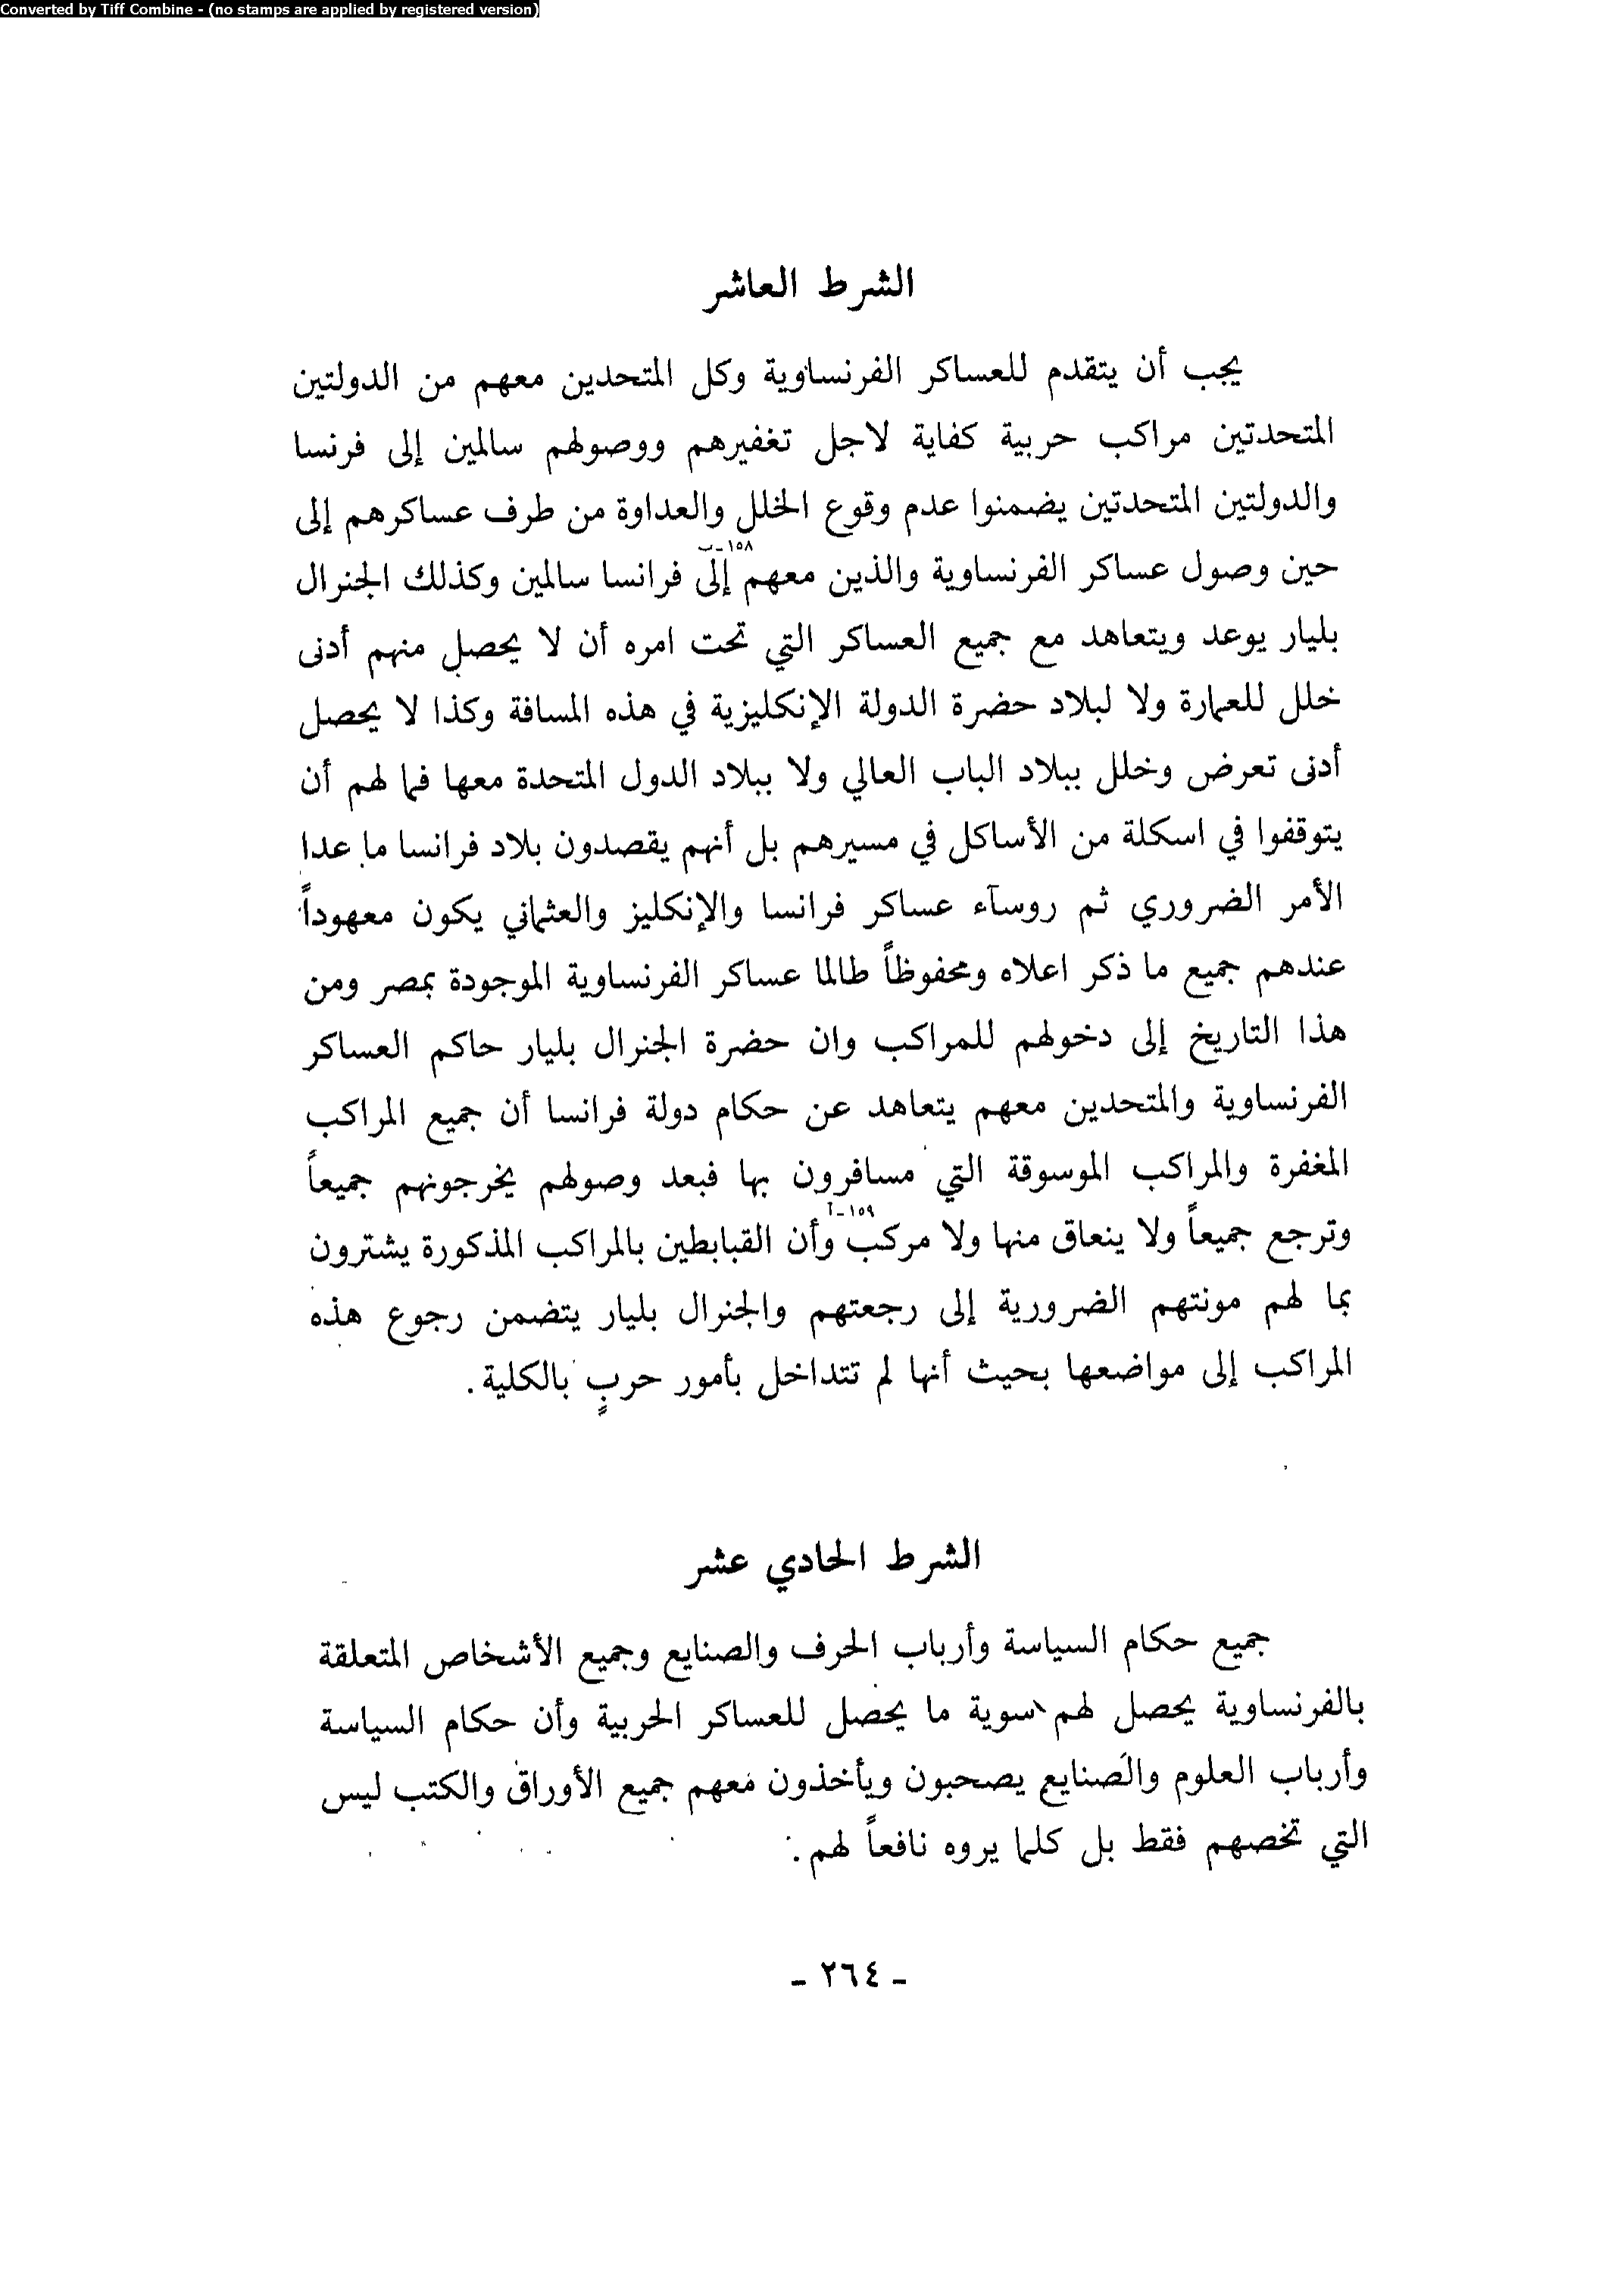 Converted by Tiff Combine - (no stamps are applied by registered version)
الشرط العاشر
يجب أن يتقدم للعساكر الفرنساوية وكل المتحدين معهم من الدولتين
المتحدتين مراكب حربية كفاية لاجل تغفيرهم ووصولهم سالمين إلى فرنسا
والدولتين المتحدتين يضمنوا عدم وقوع الخلل والعداوة من طرف عساكرهم إلى
١٥٨-ب
حين وصول عساكر الفرنساوية والذين معهم إلى فرانسا سالمين وكذلك الجنرال
بليار يوعد ويتعاهد مع جميع العساكر التي تحت امره أن لا يحصل منهم أدنى
خلل للعمارة ولا لبلاد حضرة الدولة الإنكليزية في هذه المسافة وكذا لا يحصل
أدنى تعرض وخلل ببلاد الباب العالي ولا ببلاد الدول المتحدة معها فما لهم أن
يتوقفوا في اسكلة من الأساكل في مسيرهم بل أنهم يقصدون بلاد فرانسا ما عدا
الأمر الضروري ثم روسآء عساكر فرانسا والإنكليز والعثماني يكون معهوداً
عندهم جميع ما ذكر اعلاه ومحفوظاً طالما عساكر الفرنساوية الموجودة بمصر ومن
هذا التاريخ إلى دخولهم للمراكب وان حضرة الجنرال بليار حاكم العساكر
الفرنساوية والمتحدين معهم يتعاهد عن حكام دولة فرانسا أن جميع المراكب
المغفرة والمراكب الموسوقة التي مسافرون بها فبعد وصولهم يخرجونهم جميعاً
١٥٩-آ
وترجع جميعاً ولا ينعاق منها ولا مركب وأن القبابطين بالمراكب المذكورة يشترون
بما لهم مونتهم الضرورية إلى رجعتهم والجنرال بليار يتضمن رجوع هذه
المراكب إلى مواضعها بحيث أنها لم تتداخل بأمور حربٍ بالكلية.
الشرط الحادي عشر
جميع حكام السياسة وأرباب الحرف والصنايع وجميع الأشخاص المتعلقة
بالفرنساوية يحصل لهم سوية ما يحصل للعساكر الحربية وأن حكام السياسة
وأرباب العلوم والصنايع يصحبون ويأخذون معهم جميع الأوراق والكتب ليس
التي تخصهم فقط بل كلما يروه نافعاً لهم.
- ٢٦٤ -